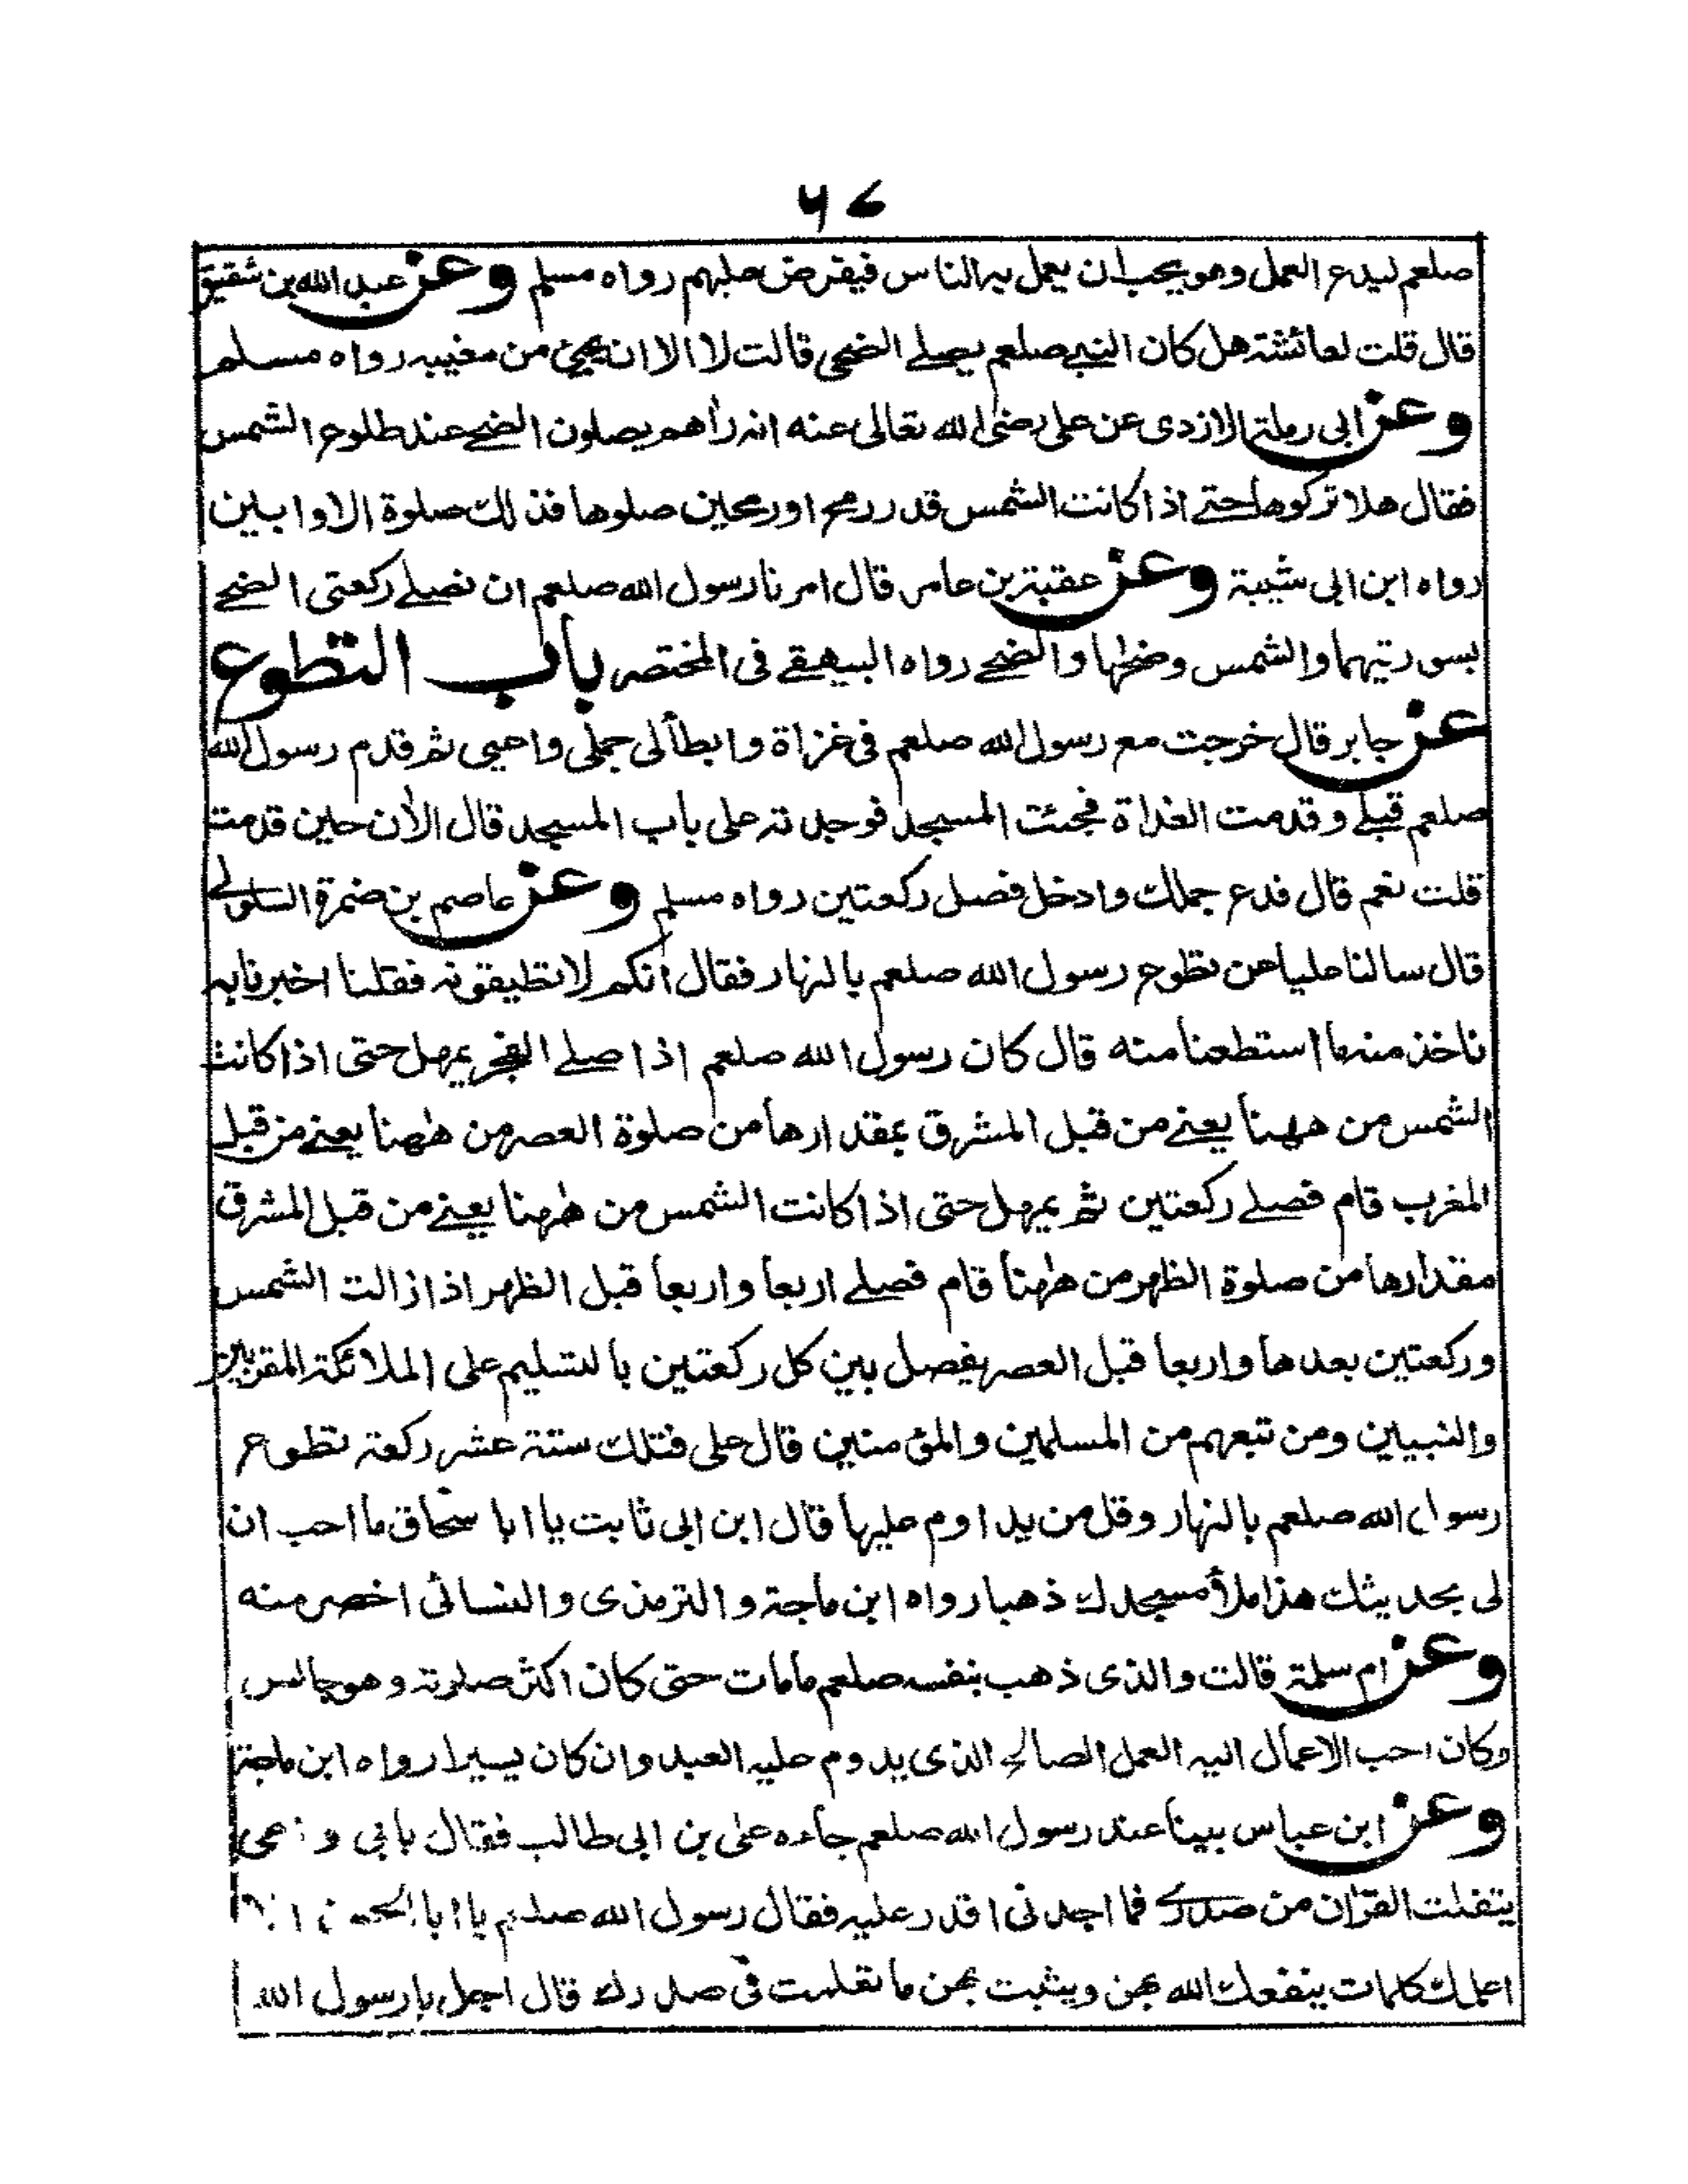 ٦٧
صلعم ليدع العمل وهو يحب ان يعمل به الناس فيفرض عليهم رواه مسلم وعن عبد الله بن شقيق
قال قلت لعائشة هل كان النبى صلعم يصلے الضحى قالت لا الا ان يجئ من مغيبه رواه مسلم
وعن ابى رملة الازدى عن على رضى الله تعالى عنه انه رأهم يصلون الضحے عند طلوع الشمس
فقال هلا تركوها حتے اذا كانت الشمس قدر رمح او رمحين صلوها فذلك صلوة الاوابين
رواه ابن ابى شيبة وعن عقبة بن عامر قال امرنا رسول الله صلعم ان نصلے ركعتى الضحے
بسورتيهما والشمس وضحٰها والضحے رواه البيهقے فى المختصر باب التطوع
عن جابر قال خرجت مع رسول الله صلعم فى غزاة وابطأ لى جملى واعيى ثم قدم رسول الله
صلعم قبلے وقدمت الغداة فجئت المسجد فوجدته على باب المسجد قال الأن حين قدمت
قلت نعم قال فدع جملك وادخل فصل ركعتين رواه مسلم وعن عاصم بن ضمرة السلولى
قال سالنا عليا عن تطوع رسول الله صلعم بالنهار فقال انكم لا تطيقونه فقلنا اخبرنا به
ناخذ منه ما استطعنا منه قال كان رسول الله صلعم اذا صلے الفجر يمهل حتى اذا كانت
الشمس من ههنا يعنے من قبل المشرق بمقدارها من صلوة العصر من ههنا يعنے من قبل
المغرب قام فصلے ركعتين ثم يمهل حتى اذا كانت الشمس من ههنا يعنے من قبل المشرق
مقدارها من صلوة الظهر من ههنا قام فصلے اربعا واربعا قبل الظهر اذا زالت الشمس
وركعتين بعدها واربعا قبل العصر يفصل بين كل ركعتين بالتسليم على الملائكة المقربين
والنبيين ومن تبعهم من المسلمين والمؤمنين قال على فتلك ستة عشر ركعة تطوع
رسول الله صلعم بالنهار وقل من يداوم عليها قال ابن ابى ثابت يا ابا سحاق ما احب ان
لى بحديثك هذا ملأ مسجدك ذهبا رواه ابن ماجة والترمذى والنسائى اخصر منه
وعن ام سلمة قالت والذى ذهب بنفسه صلعم مامات حتى كان اكثر صلوته وهو جالس
وكان احب الاعمال اليه العمل الصالح الذى يدوم عليه العبد وان كان يسيرا رواه ابن ماجة
وعن ابن عباس بينا عند رسول الله صلعم جاءه على بن ابى طالب فقال بابى و
يتفلت القرآن من صدرى فما اجدنى اقدر عليه فقال رسول الله صلعم يا ابا الحسن
اعلمك كلمات ينفعك الله بهن ويثبت بهن ما تعلمت فى صدرك قال اجل يا رسول الله